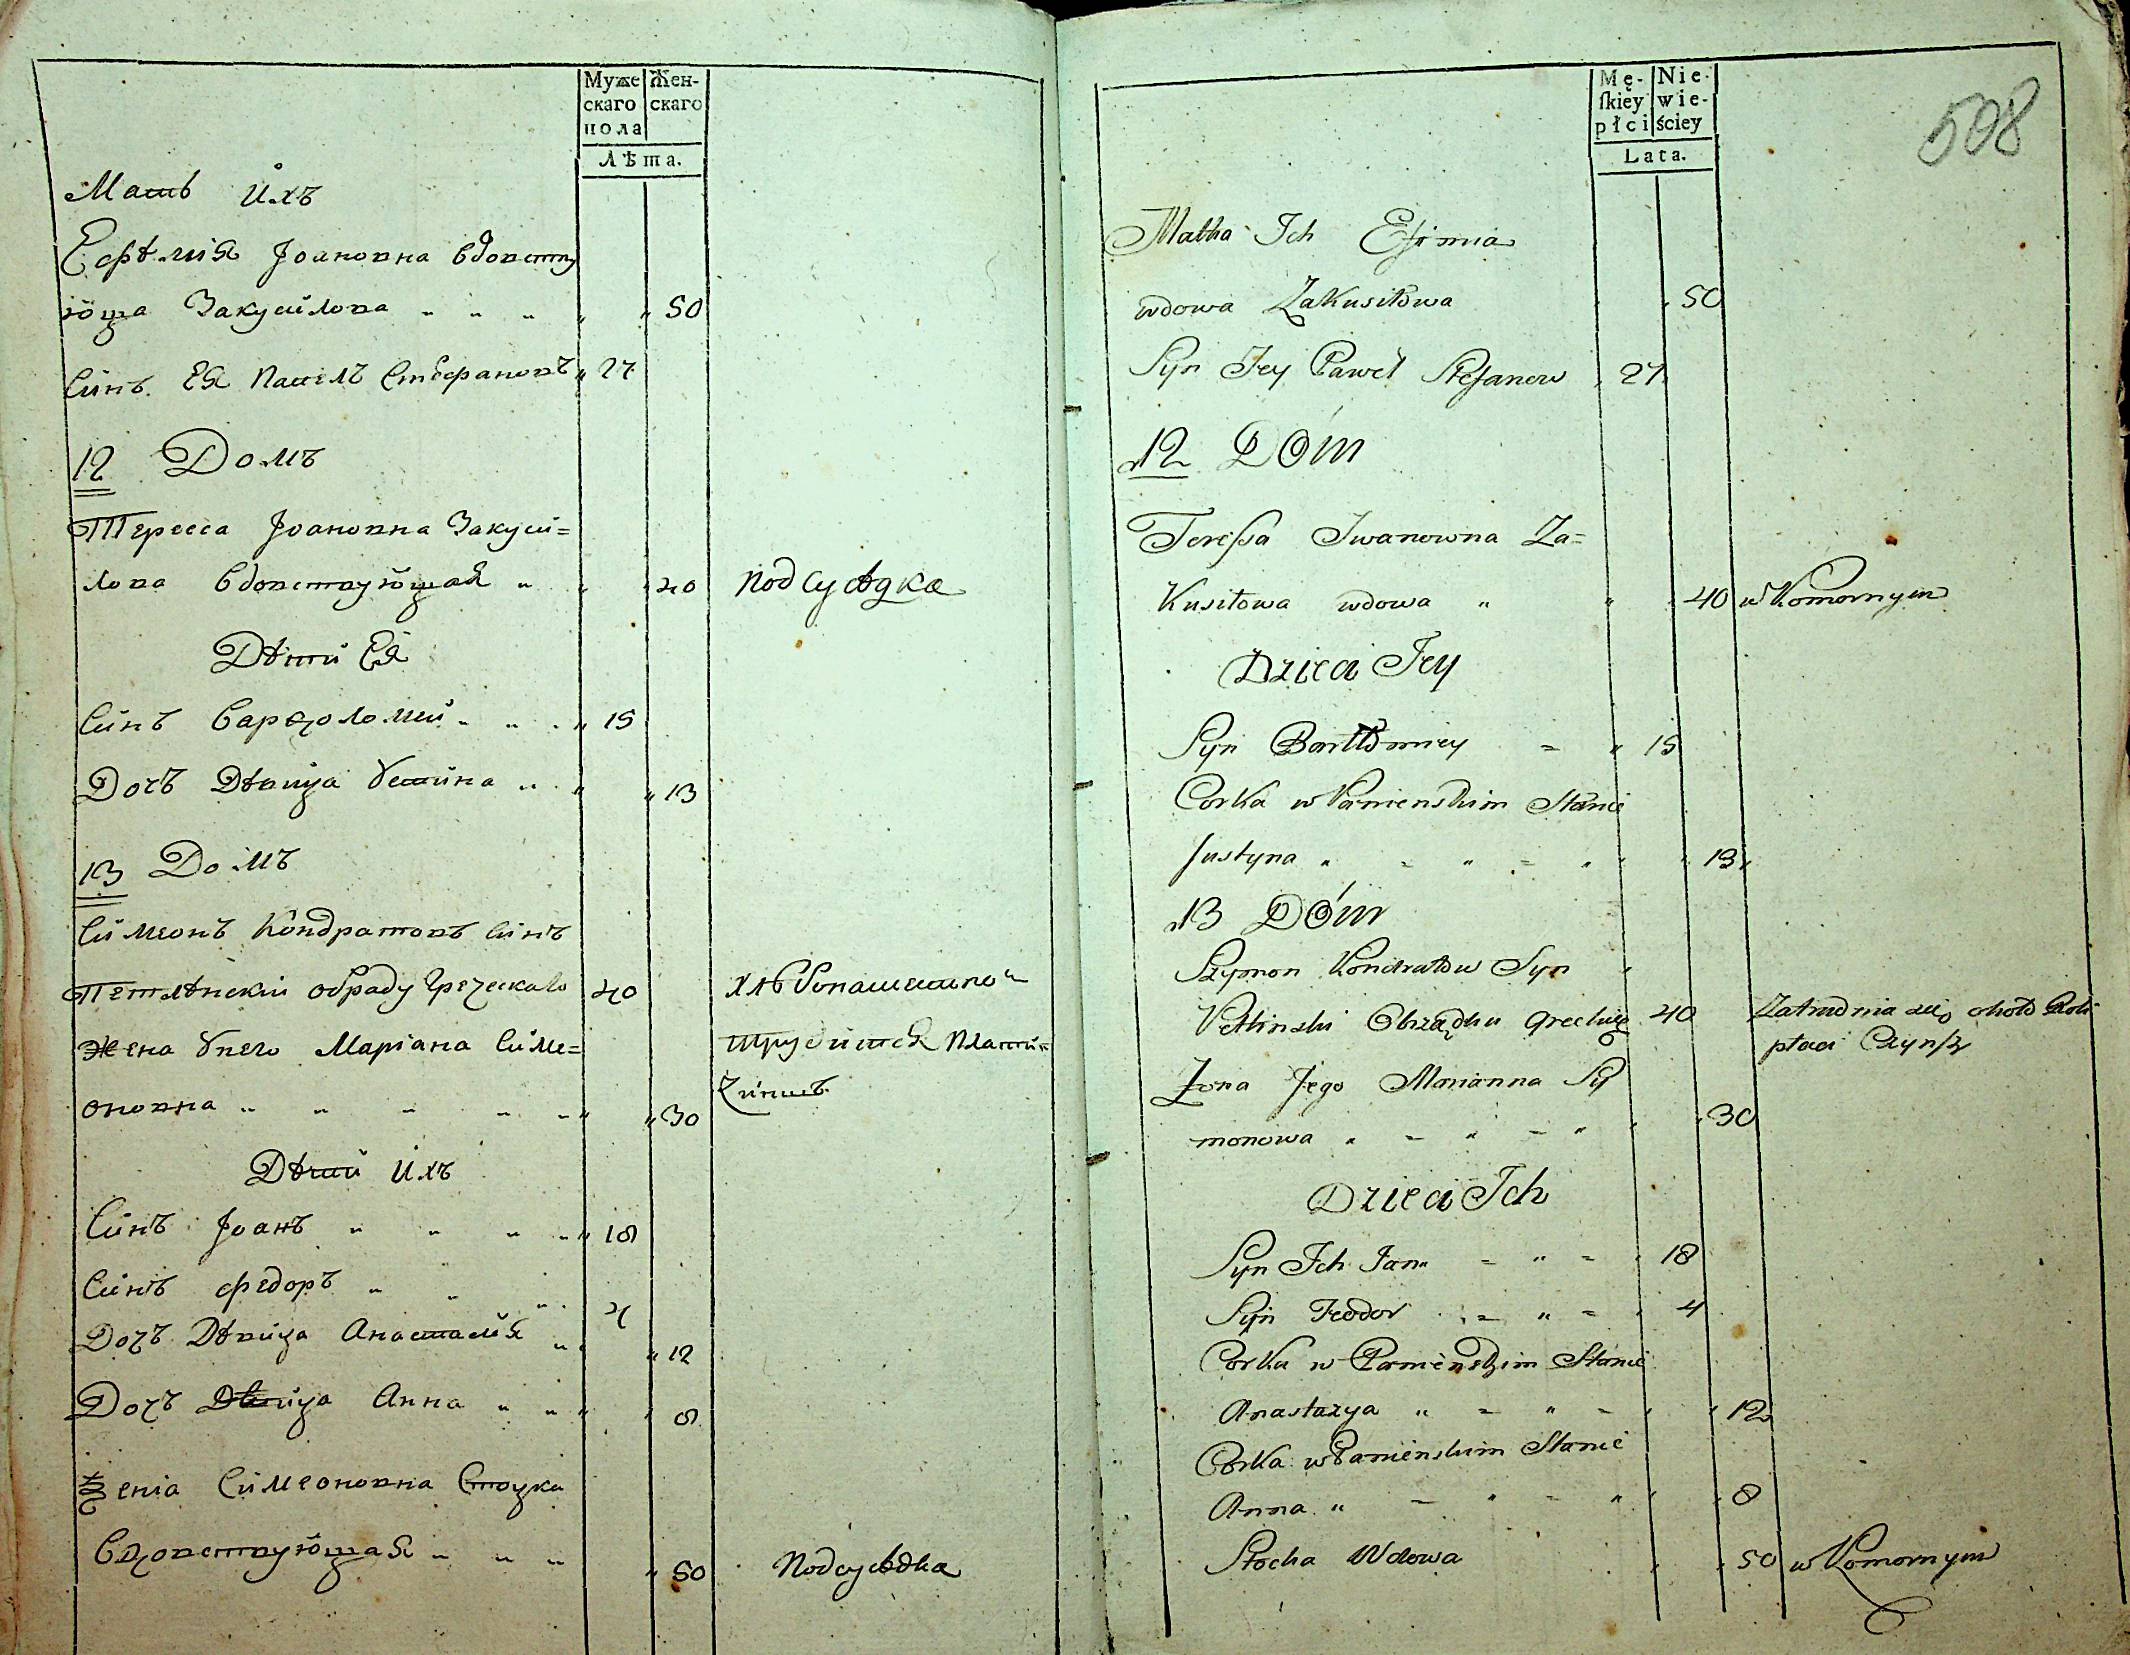 Муже Жен-
скаго скаго
пола
Лѣта.
Мать Ихъ
Еѳѣмія Іоановна вдовству
юща Закусилова " " " " " 50
Синъ Ея Павелъ Стефановъ " 27
12 Домъ
Тересса Іоановна Закуси=
лова вдовствующая " " " 40 подсусѣдка
Дѣти Ея
Синъ Варфоломей " " " 15
Дочъ Дѣвица Устина " " " 13
13 Домъ
Симеонъ Кондратовъ Синъ
обряду греческаго 40 хлѣбопашествомъ
Жена у него Маріана Симе= трудится платитъ
чиншъ
оновна " " " " " " " 30
Дѣти Ихъ
Синъ Іоанъ " " " " " 18
Синъ Федоръ " " " 4
Дочъ Дѣвица Анастасія " " 12
Дочъ Дѣвица Анна " " " " 8
Ѯенія Симеоновна Стоцка
Вдовствующая " " " " 50 Подсусѣдка
508
Mę- Nie-
skiey wie-
płci ściey
Lata.
Matka Ich Efimia
wdowa Zakusiłowa " " 50
Syn Jey Paweł Stefanow " 27
12 Dóm
Teressa Iwanowna Za=
Kusiłowa wdowa " " " 40 w Komornym
Dzieci Jey
Syn Bartłomiey = " 15
Corka w Panienskim Stanie
Justyna " = " = " " " 13
13 Dóm
Szymon Kondratów Syn "
Obrządku Greckieg 40 Zatrudnia się około Roli
płaci Czynsz
Zona Jego Marianna Sy
monowa " = " = " " " 30
Dzieci Ich
Syn Ich Jan " = " = " 18
Syn Teodor " = " = " 4
Corka w Panienskim Stanie
Anastazya " = " = " " 12
Corka w Panienskim Stanie
Anna " = " = " " " 8
Stocka Wdowa " " 50 w Komornym